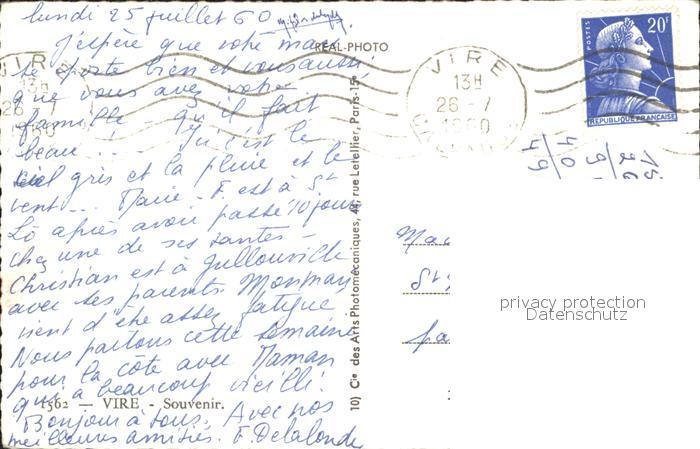 lundi 25 juillet 60
J'espère que votre maman
se porte bien et vous aussi,
que vous avez votre
famille - qu'il fait
beau... Ici c'est le
ciel gris et la pluie et le
vent... Marie-F. est à St
Lô après avoir passé 10 jours
chez une de ses tantes -
Christian est à Jullouville
avec ses parents. Monman
vient d'être assez fatigué
Nous partons cette semaine
pour la côte avec Maman
qui a beaucoup vieilli.
1562 — VIRE - Souvenir.
Bonjour à tous. Avec nos
meilleures amitiés. F. Delalonde
REAL-PHOTO
10) Cie des Arts Photomécaniques, 44, rue Letellier, Paris-15e
VIRE
13H
26
1960
VIRE
13H
26 - 7
1960
POSTES
20F
REPUBLIQUE FRANÇAISE
privacy protection
Datenschutz